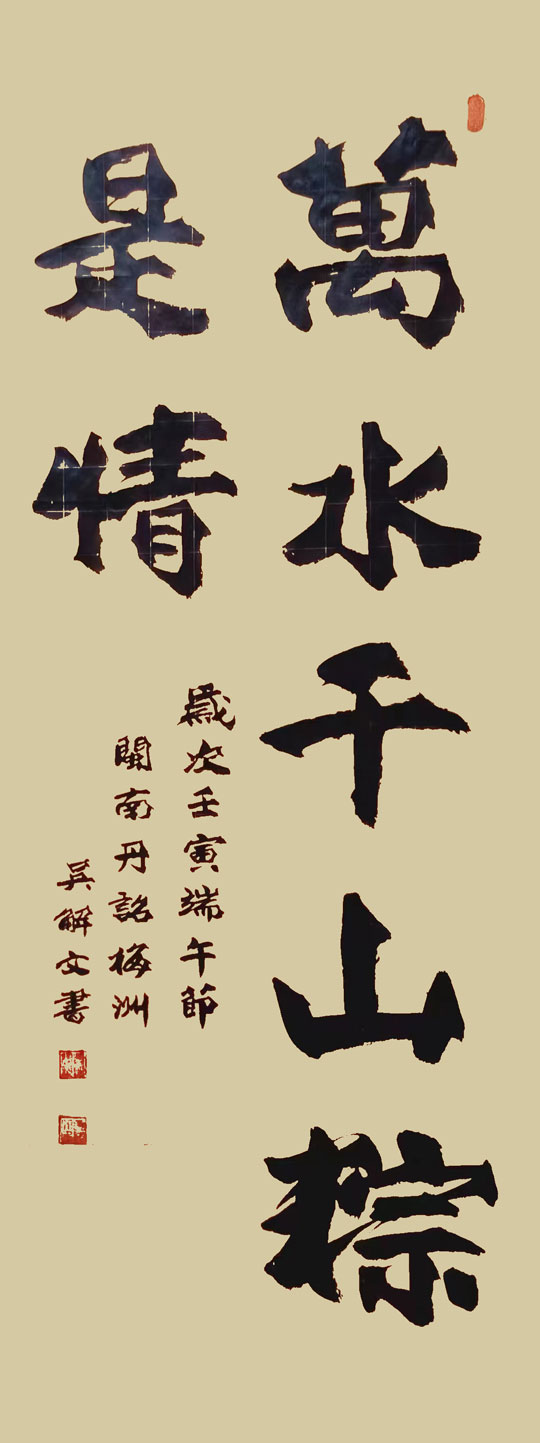 萬水千山粽
是情
歲次壬寅端午節
閩南丹詔梅洲
吳解文書